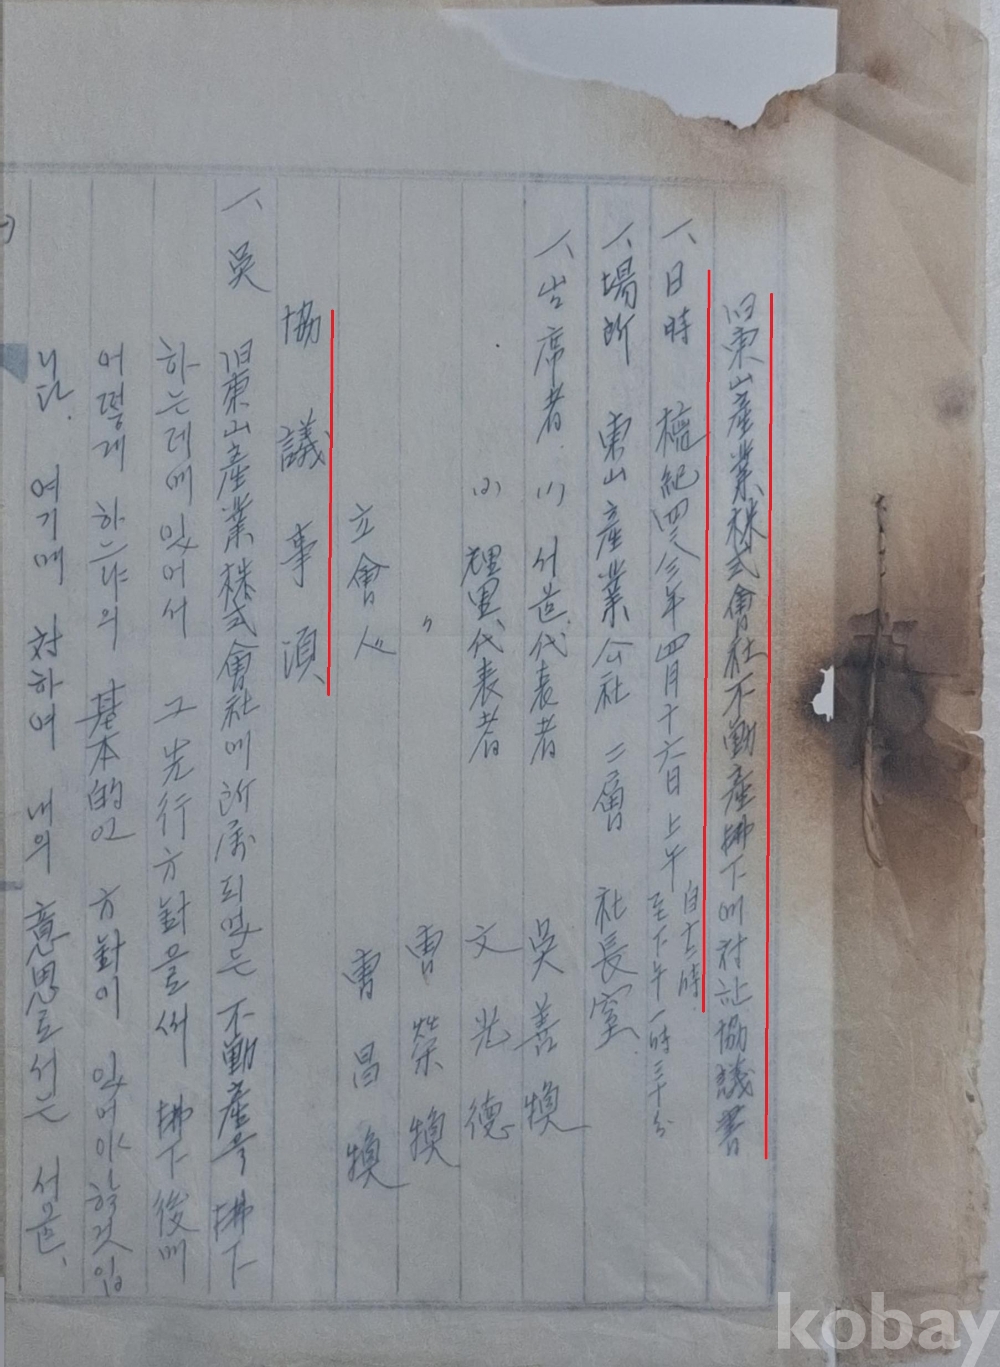 旧東山産業株式會社不動産拂下에対한協議書
一、日時 檀紀四二八三年四月十六日上午 自十二時 至下午一時三十分
一、場所 東山産業公社 二層 社長室
一、出席者 (1) 서울代表者 吳善煥
(2) 裡里代表者 文光德
〃 曺榮煥
立會人 曺昌煥
協議事項
一、吳 旧東山産業株式會社에所属되였든 不動産을 拂下
하는데에 있어서 그先行方針을써 拂下後에
어떻게 하느냐의 基本的인 方針이 있어야 할것입
니다. 여기에 対하여 내의 意思로서는 서울,
kobay